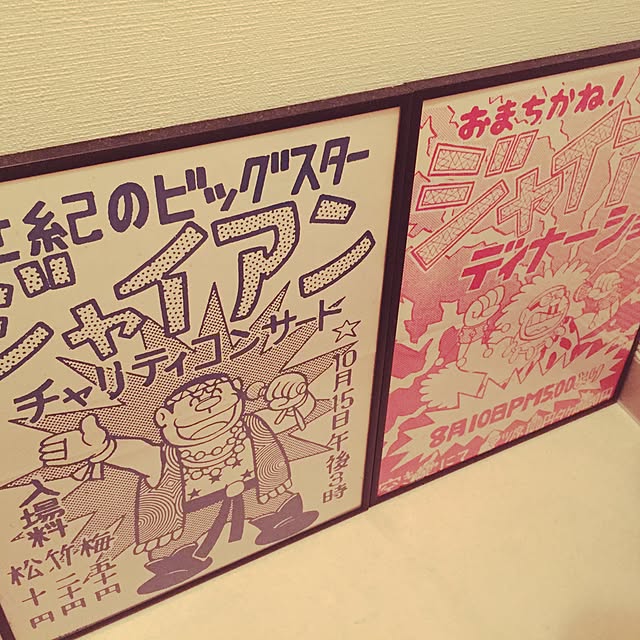 世紀のビッグスター
ジャイアン
チャリティコンサート
☆10月15日午後3時
入場料
梅 五十円
竹 二十円
松 十円
おまちかね!
ジャイア
ディナーショ
8月10日PM5:00